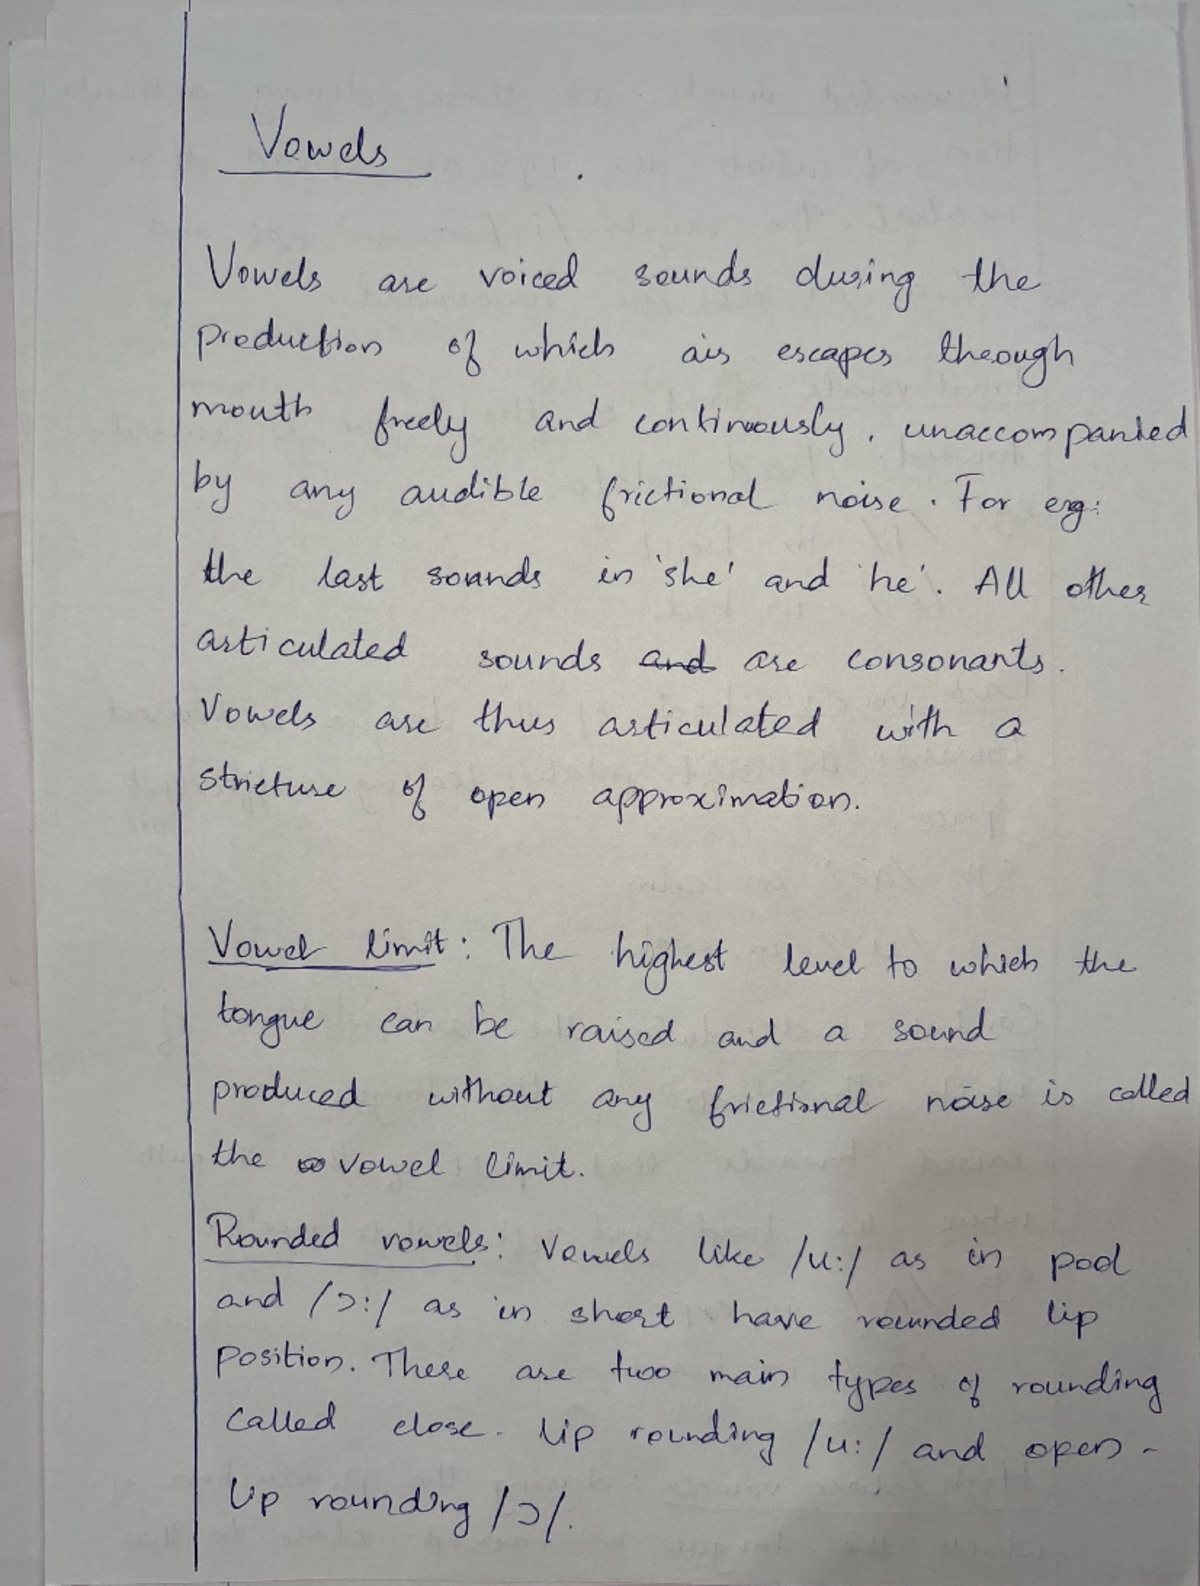 Vowels
Vowels are voiced sounds during the
production of which air escapes through
mouth freely and continuously, unaccompanied
by any audible frictional noise. For eg:
the last sounds in 'she' and 'he'. All other
articulated sounds and are consonants.
Vowels are thus articulated with a
stricture of open approximation.
Vowel limit: The highest level to which the
tongue can be raised and a sound
produced without any frictional noise is called
the vowel limit.
Rounded vowels: Vowels like /u:/ as in pool
and /ɔ:/ as in short have rounded lip
position. There are two main types of rounding
called close-lip rounding /u:/ and open-
lip rounding /ɔ/.